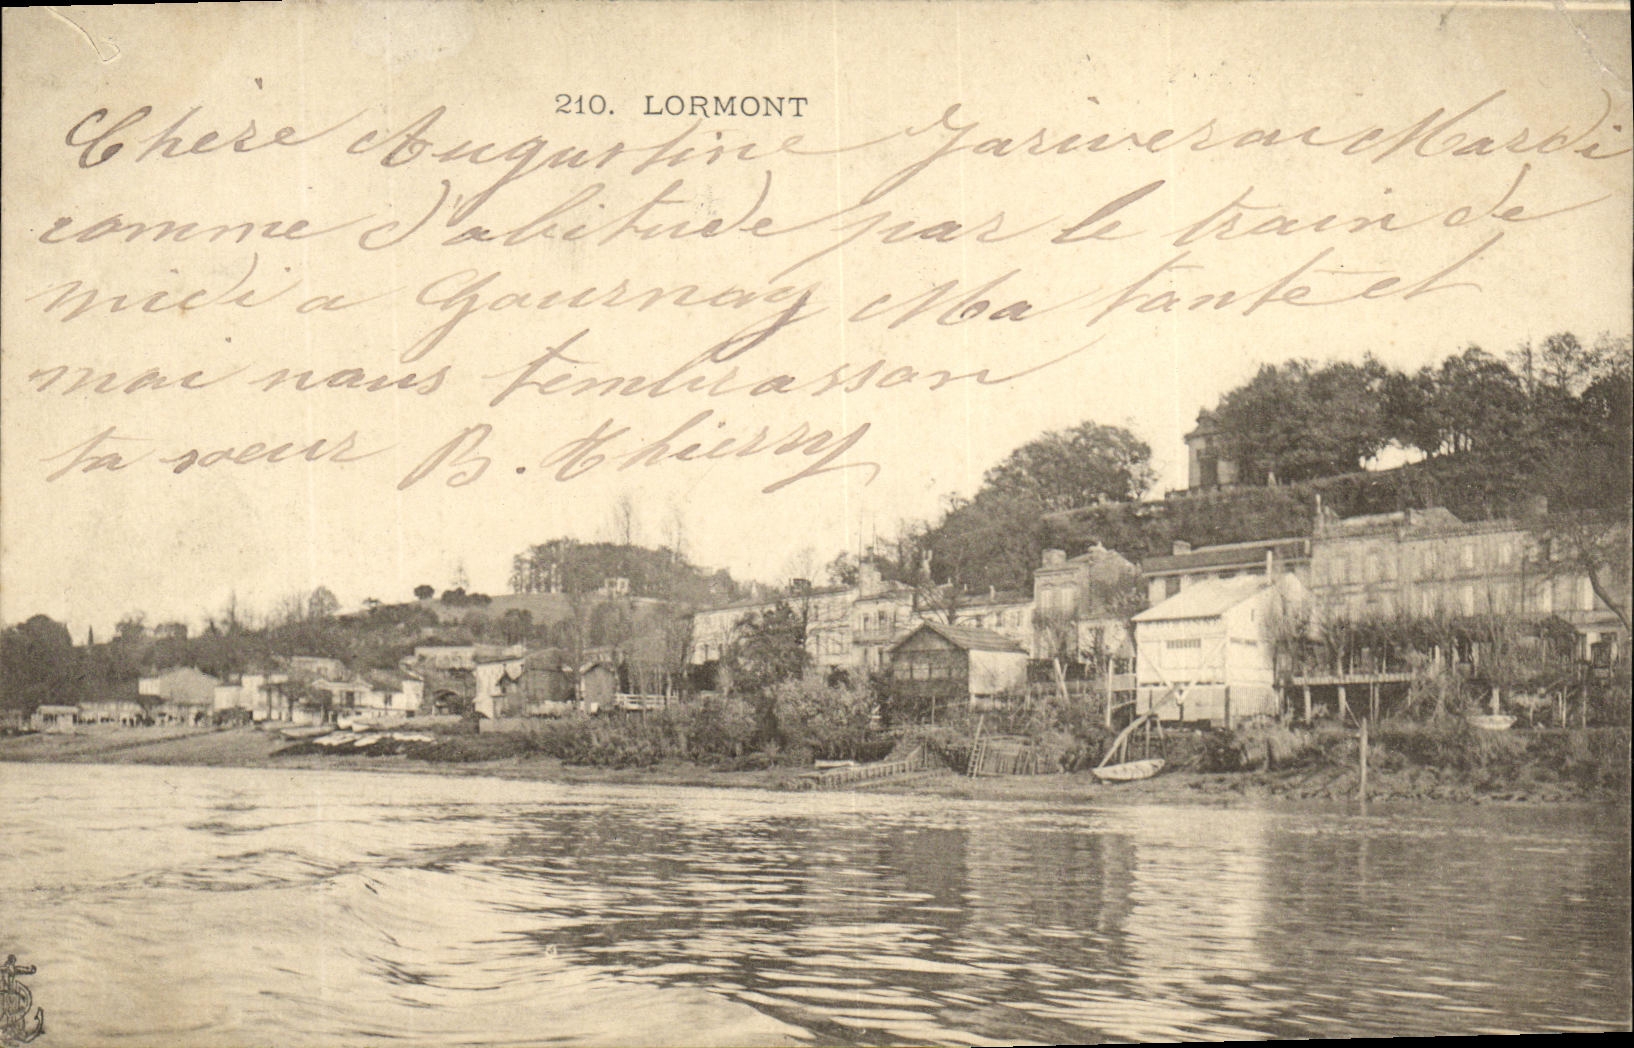 210. LORMONT
Chère Augustine J'ariverai Mardi
comme d'abitude par le train de
midi a Gournay Ma tante et
moi nous t'embrasson
ta soeur B. Thierry